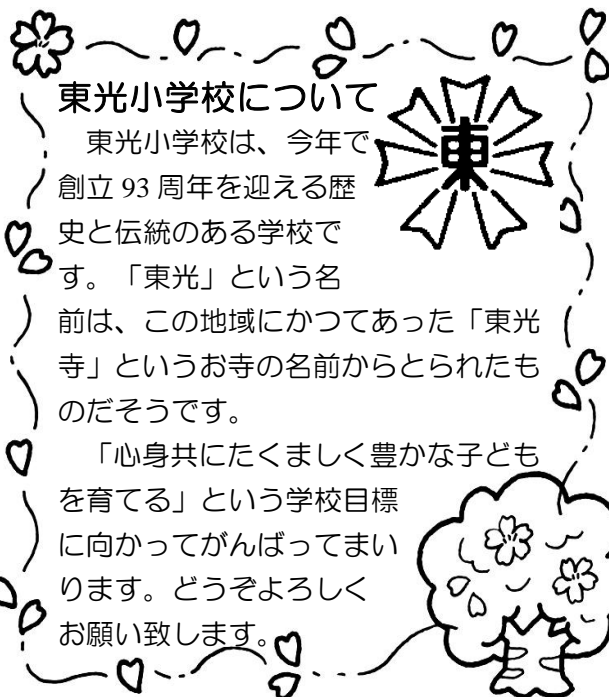 東光小学校について
東
東光小学校は、今年で
創立 93 周年を迎える歴
史と伝統のある学校で
す。「東光」という名
前は、この地域にかつてあった「東光
寺」というお寺の名前からとられたも
のだそうです。
「心身共にたくましく豊かな子ども
を育てる」という学校目標
に向かってがんばってまい
ります。どうぞよろしく
お願い致します。